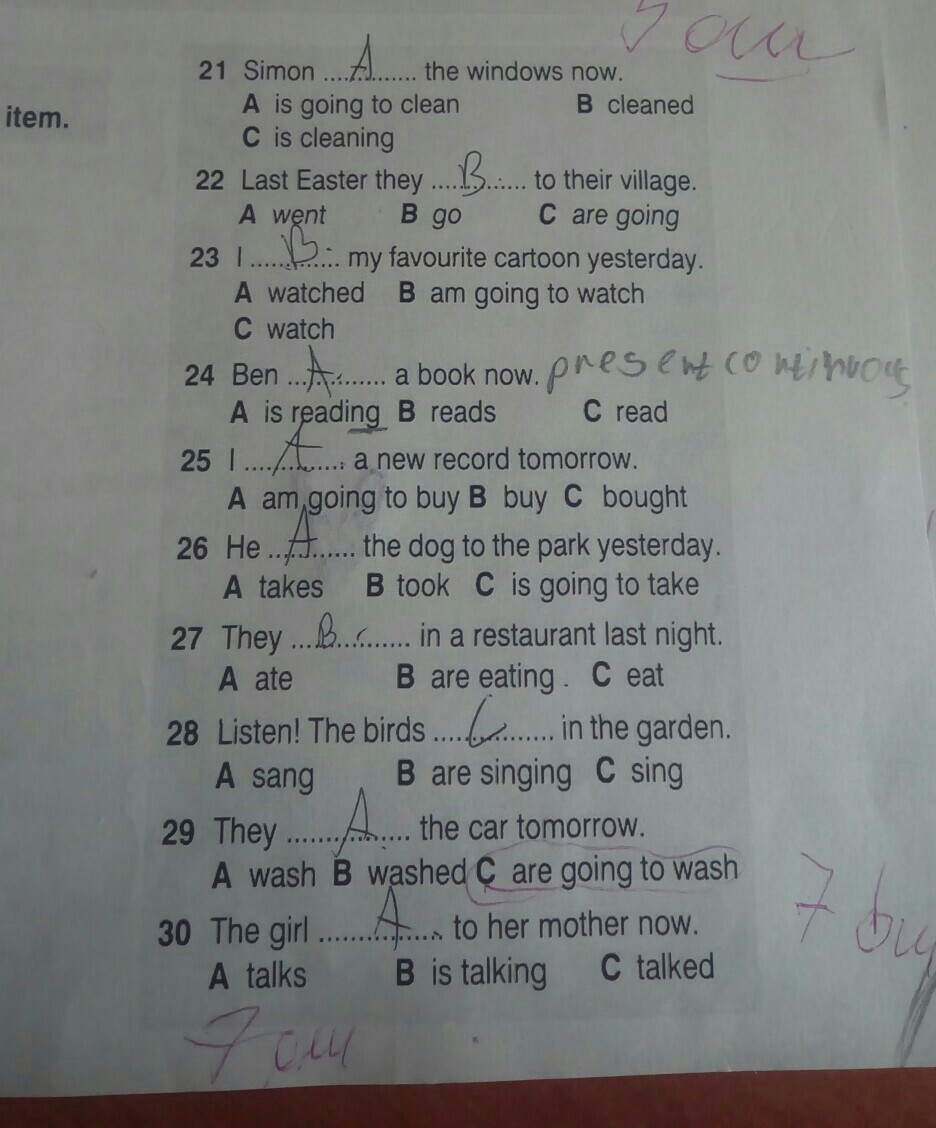 5 ош
item.
21 Simon ....A....... the windows now.
A is going to clean B cleaned
C is cleaning
22 Last Easter they .....B....... to their village.
A went B go C are going
23 I ......B....... my favourite cartoon yesterday.
A watched B am going to watch
C watch
24 Ben ...A.......... a book now. present continuous
A is reading B reads C read
25 I ....A....... a new record tomorrow.
A am going to buy B buy C bought
26 He ...A....... the dog to the park yesterday.
A takes B took C is going to take
27 They ...B............ in a restaurant last night.
A ate B are eating . C eat
28 Listen! The birds .....C.......... in the garden.
A sang B are singing C sing
29 They ........A....... the car tomorrow.
A wash B washed C are going to wash
30 The girl .........A....... to her mother now.
A talks B is talking C talked
7 ош